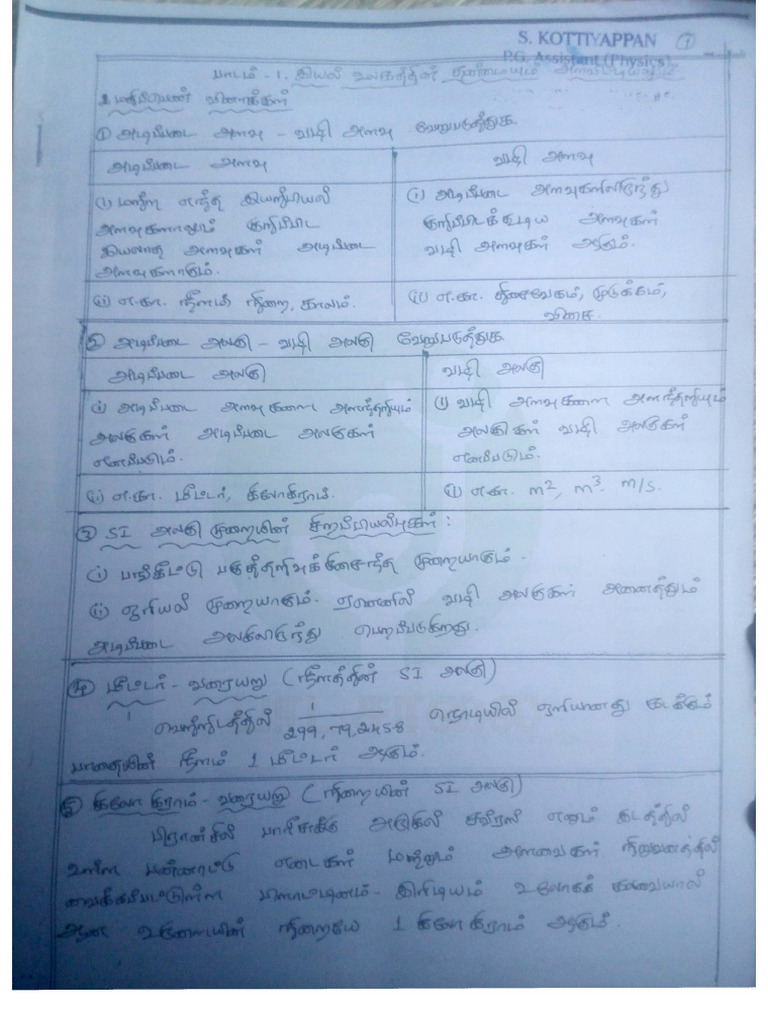 S. KOTTIYAPPAN ①
P.G. Assistant (Physics),
பாடம் - 1. இயல் உலகத்தின் தன்மையும் அளவீட்டியலும்
2 மதிப்பெண் வினாக்கள்
① அடிப்படை அளவு - வழி அளவு வேறுபடுத்துக
அடிப்படை அளவு
வழி அளவு
i) மற்ற எந்த இயற்பியல்
அளவுகளாலும் குறிப்பிட
இயலாத அளவுகள் அடிப்படை
அளவுகளாகும்.
i) அடிப்படை அளவுகளிலிருந்து
குறிப்பிடக்கூடிய அளவுகள்
வழி அளவுகள் ஆகும்.
ii) எ.கா. நீளம் நிறை, காலம்.
ii) எ.கா. திசைவேகம், முடுக்கம்,
விசை.
② அடிப்படை அலகு - வழி அலகு வேறுபடுத்துக
அடிப்படை அலகு
வழி அலகு
i) அடிப்படை அளவுகளை அளந்தறியும்
அலகுகள் அடிப்படை அலகுகள்
எனப்படும்.
i) வழி அளவுகளை அளந்தறியும்
அலகுகள் வழி அலகுகள்
எனப்படும்.
ii) எ.கா. மீட்டர், கிலோகிராம்.
ii) எ.கா. m², m³. m/s.
③ SI அலகு முறையின் சிறப்பியல்புகள் :
i) பங்கீட்டு பகுத்தறிவுக்கிசைந்த முறையாகும்.
ii) ஓரியல் முறையாகும். ஏனெனில் வழி அலகுகள் அனைத்தும்
அடிப்படை அலகிலிருந்து பெறப்படுகிறது.
④ மீட்டர் - வரையறு (நீளத்தின் SI அலகு)
வெற்றிடத்தில் 1/299,79,2458 நொடியில் ஒளியானது கடக்கும்
பாதையின் நீளம் 1 மீட்டர் ஆகும்.
⑤ கிலோ கிராம் - வரையறு (நிறையின் SI அலகு)
பிரான்சில் பாரிசுக்கு அருகில் சவ்ரஸ் எனும் இடத்தில்
உள்ள பன்னாட்டு எடைகள் மற்றும் அளவைகள் நிறுவனத்தில்
வைக்கப்பட்டுள்ள பிளாட்டினம் - இரிடியம் உலோகக் கலவையால்
ஆன உருளையின் நிறையே 1 கிலோ கிராம் ஆகும்.